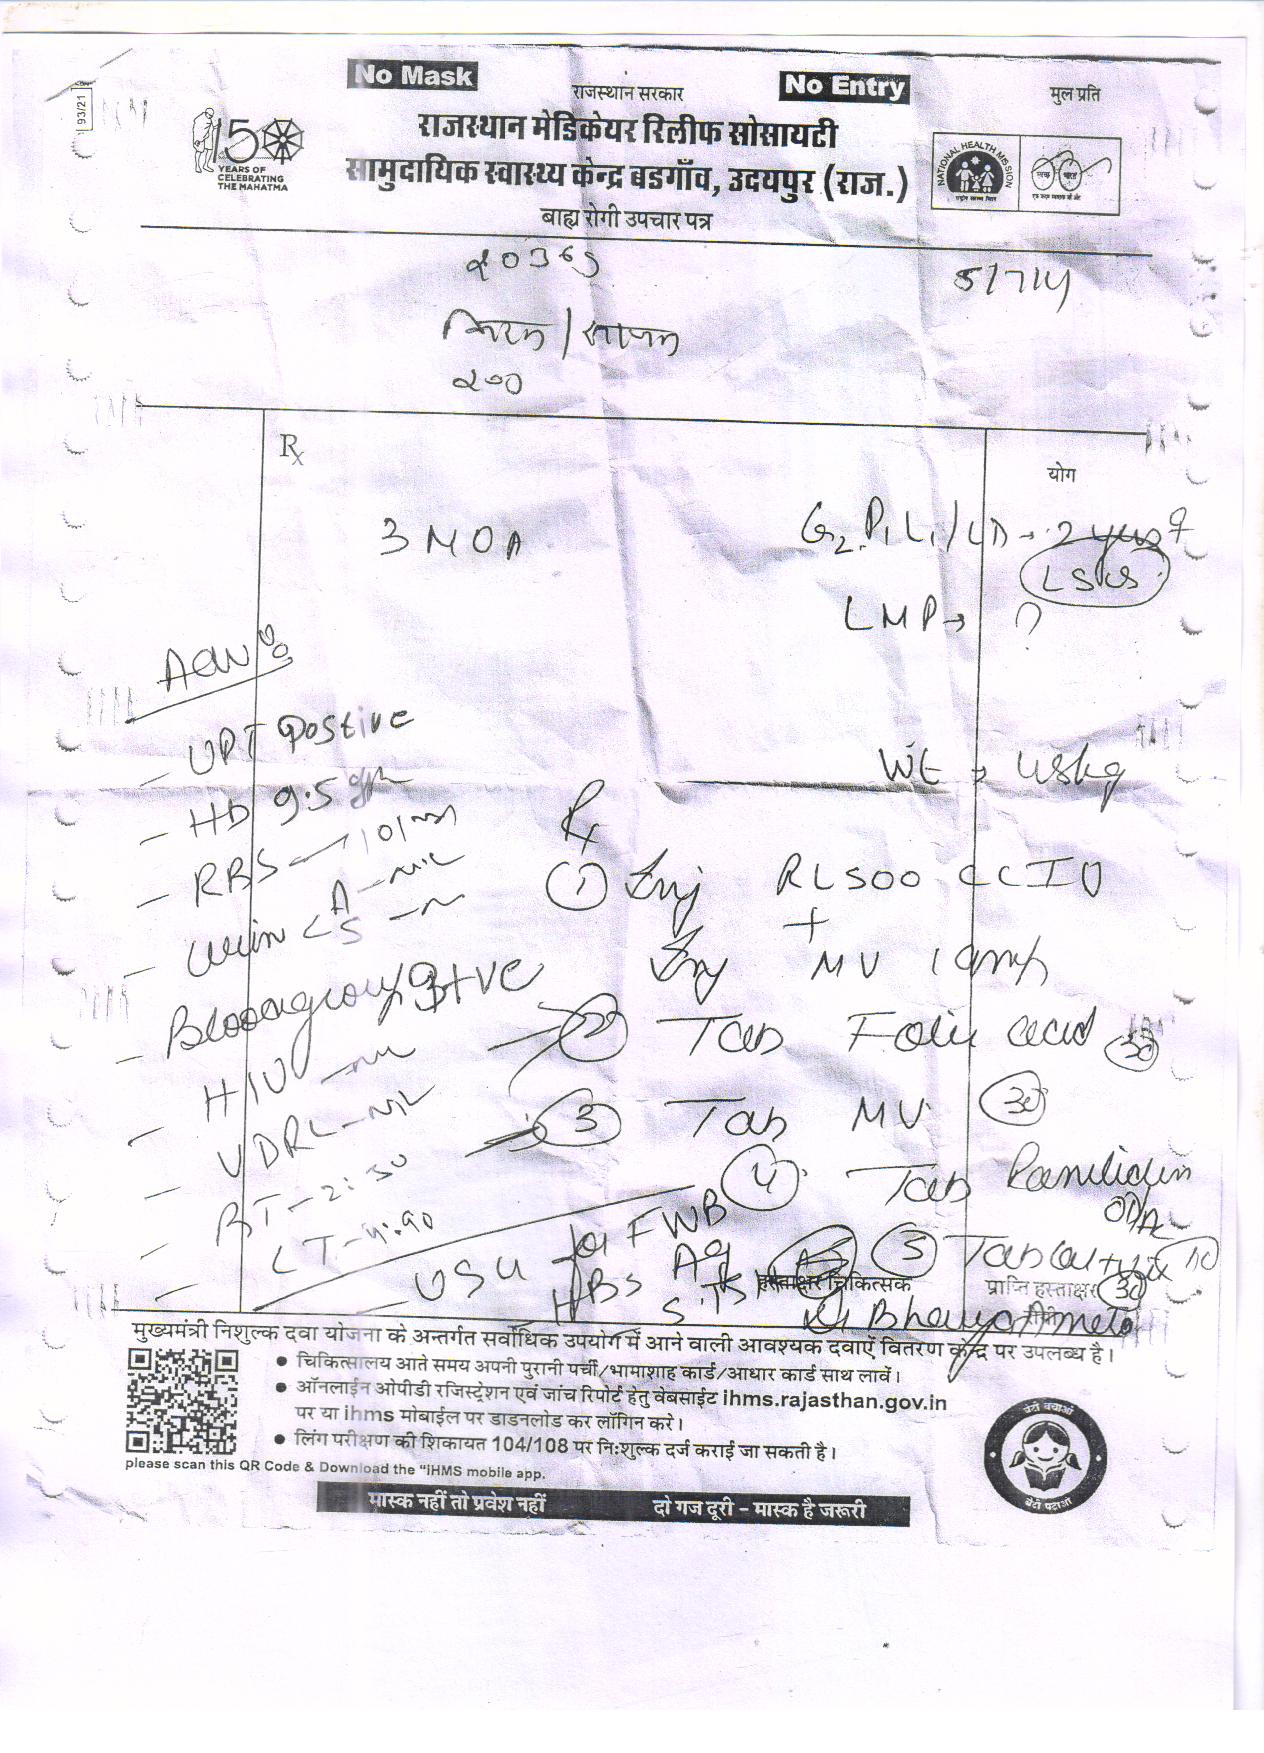 93/21
No Mask
No Entry
राजस्थान सरकार
मुल प्रति
150
YEARS OF
CELEBRATING
THE MAHATMA
राजस्थान मेडिकेयर रिलीफ सोसायटी
सामुदायिक स्वास्थ्य केन्द्र बडगाँव, उदयपुर (राज.)
बाह्य रोगी उपचार पत्र
NATIONAL HEALTH MISSION
5/7/24
किरन /
Rx
योग
3 MOA
G2 P1 L1 / LD → 2 years
LSCS
LMP → ?
UPT Postive
Wt → 48kg
HB 9.5
RBS → 101
Rx
① Inj RL 500 CC IV
+
Inj MV 1 amp
A - NIL
S -
Bloodgroup B+VE
② Tab Folic acid 30
HIV -
③ Tab MV 30
VDRL - NIL
④ Tab
BT - 2:30
CT - 4:90
⑤ Tab
USG for FWB
HBS Ag
हस्ताक्षर चिकित्सक
प्राप्ति हस्ताक्षर
Dr Bhavya Ameta
मुख्यमंत्री निशुल्क दवा योजना के अन्तर्गत सर्वाधिक उपयोग में आने वाली आवश्यक दवाऐं वितरण केन्द्र पर उपलब्ध है।
● चिकित्सालय आते समय अपनी पुरानी पर्ची/भामाशाह कार्ड/आधार कार्ड साथ लावें।
● ऑनलाईन ओपीडी रजिस्ट्रेशन एवं जांच रिपोर्ट हेतु वेबसाईट ihms.rajasthan.gov.in
पर या ihms मोबाईल पर डाडनलोड कर लॉगिन करे।
● लिंग परीक्षण की शिकायत 104/108 पर नि:शुल्क दर्ज कराई जा सकती है।
please scan this QR Code & Download the "iHMS mobile app.
बेटी बचाओ
बेटी पढ़ाओ
मास्क नहीं तो प्रवेश नहीं
दो गज दूरी – मास्क है जरूरी